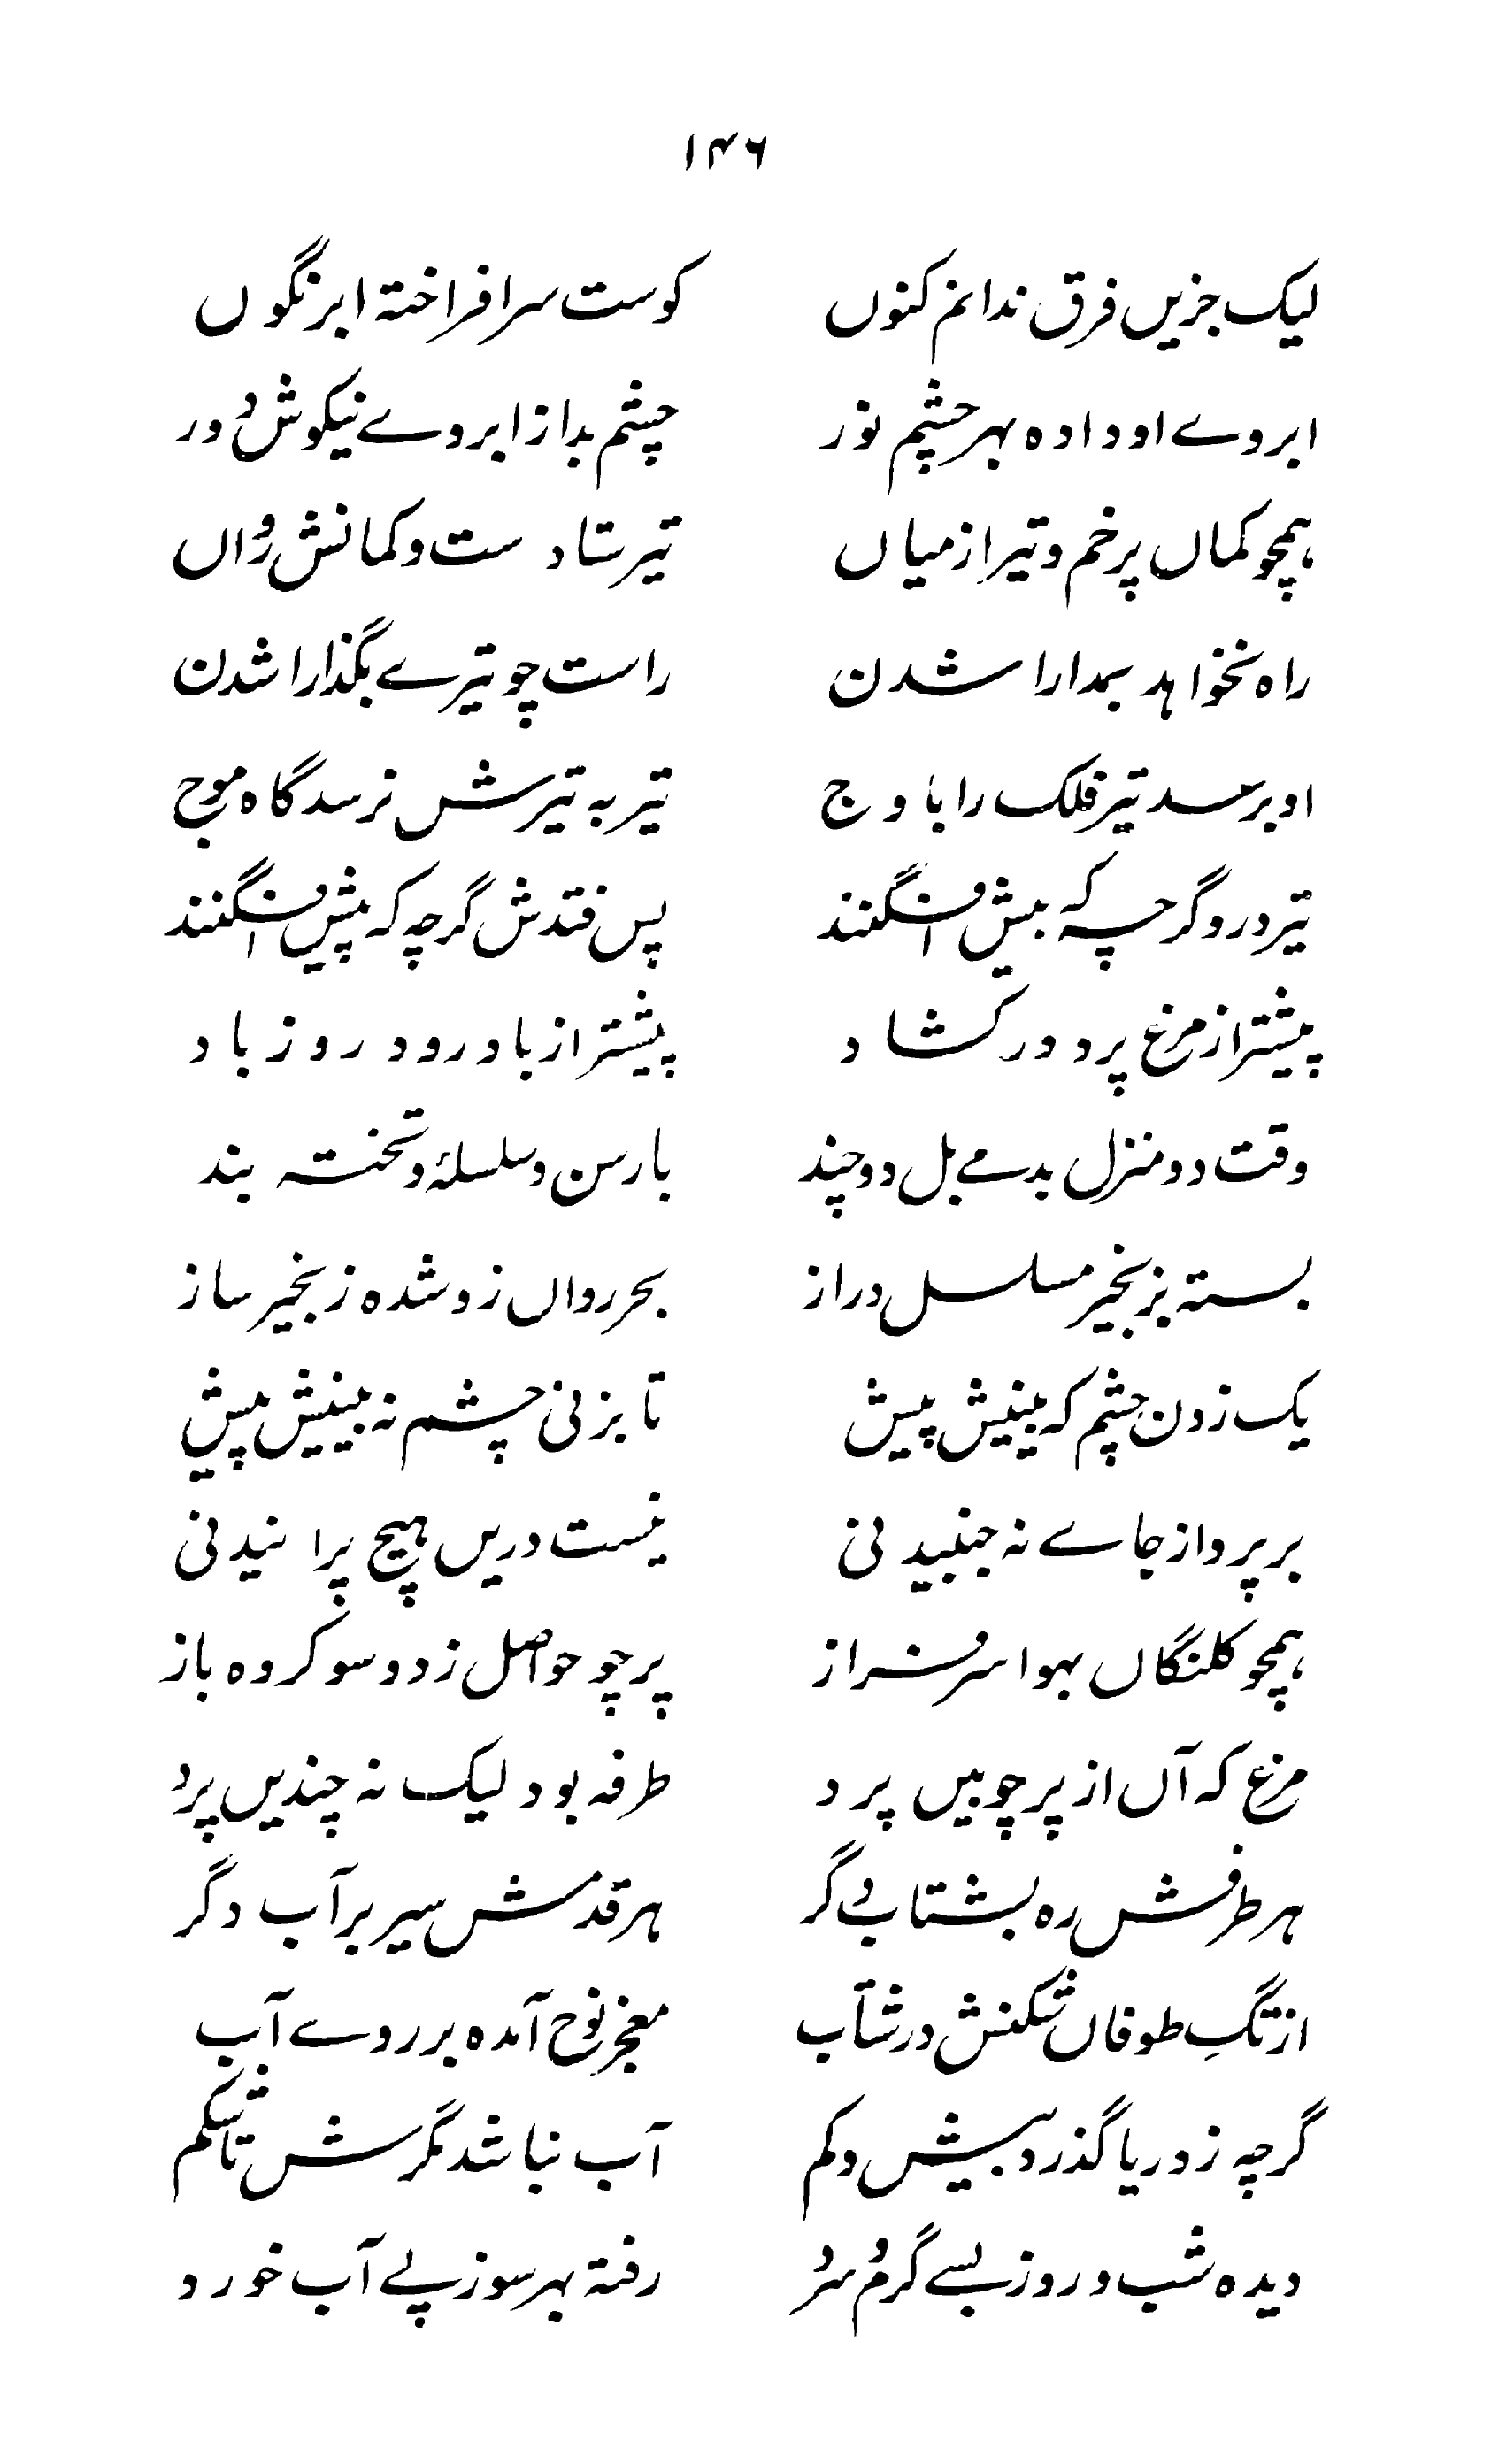 ۱۴۶
لیک جزیں فرق ندانم کنوں کوست سرافراختہ ابر نگوں
ابروے او دادہ بہر چشم نور چشم بد از ابروے نیکوش دُور
ہمچو کماں پرخم و تیر از میاں تیر ستادست و کمانش رواں
راہ نخواہد بمدارا شدن راست چو تیرے بگذارا شدن
او برسد تیر فلک را باوج تیر بہ تیرش نرسد گاہ موج
تیر درو گرچہ کہ بیش افگنند پس فتدش گرچہ کہ پیش افگنند
پیشتر از مرغ پرد در کشاد پیشتر از باد رود روز باد
وقت دو منزل بدمے بل دو چند بارسن و سلسلۂ و تختہ بند
بستہ بزنجیر مسلسل دراز بحر رواں زو شدہ زنجیر ساز
یک زدن چشم کہ بینیش پیش تا بزنی چشم نہ بینیش پیش
بر پرواز جاے نہ جنبیدنی نیست دریں ہیچ پرانیدنی
ہمچو کلنگاں بہوا سرفراز پر چو حواصل زدو سو کردہ باز
مرغ کہ آں از پر چوبیں پرد طرفہ بود لیک نہ چندیں پرد
ہر طرفش رہ بشتابے گر ہر قدمش سیر بر آب دگر
از تگِ طوفاں شکنش در شتاب معجز نوح آمدہ بر روے آب
گرچہ ز دریا گذرد بیش و کم آب نباشد مگرش تا شکم
دیدہ شب و روز بسے گرم و سرد رفتہ بہر سوز پے آب خورد